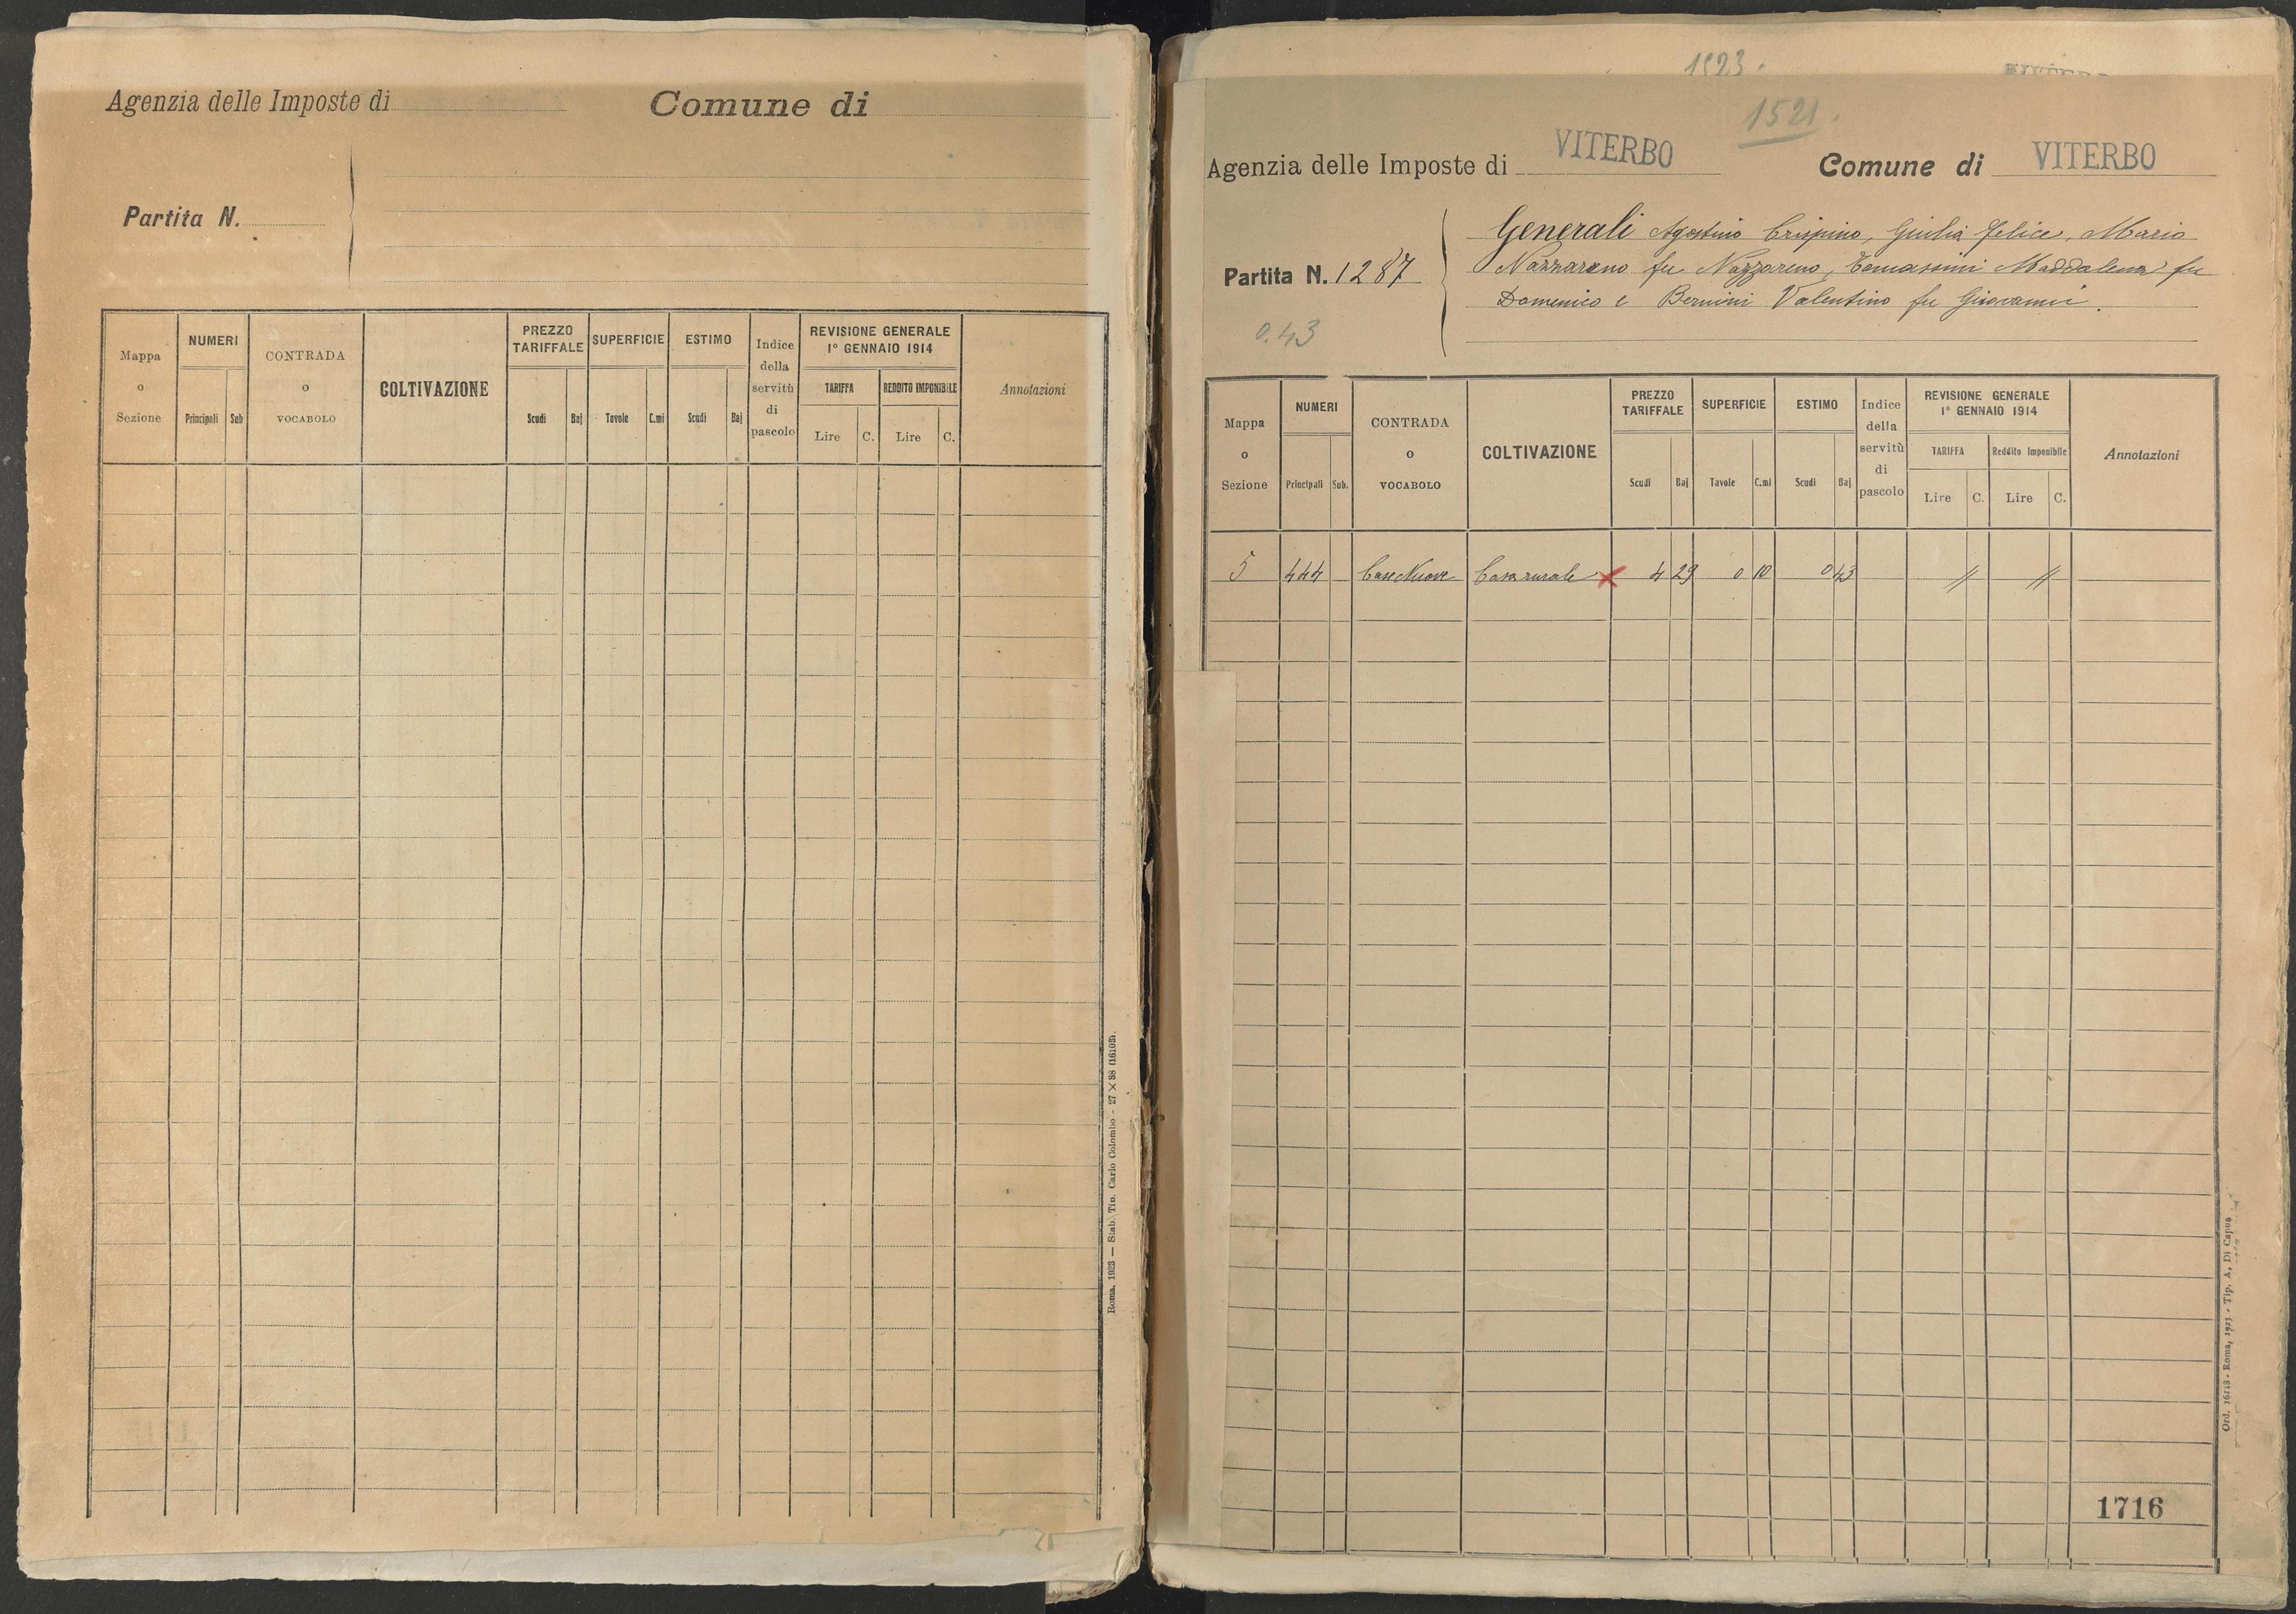 Agenzia delle Imposte di
Comune di
Partita N.
Mappa o Sezione
NUMERI
Principali Sub
CONTRADA o VOCABOLO
COLTIVAZIONE
PREZZO TARIFFALE
Scudi Baj
SUPERFICIE
Tavole C.mi
ESTIMO
Scudi Baj
Indice della servitù di pascolo
REVISIONE GENERALE
1° GENNAIO 1914
TARIFFA
Lire C.
REDDITO IMPONIBILE
Lire C.
Annotazioni
Roma, 1923 — Stab. Tip. Carlo Colombo - 27 × 38 (16103).
1523.
1521.
Agenzia delle Imposte di VITERBO
Comune di VITERBO
Partita N. 1287
0.43
Generali Agostino Crispino, Giulia Felice, Mario
Nazzareno fu Nazzareno, Tomassini Maddalena fu
Domenico e Bernini Valentino fu Giovanni.
Mappa o Sezione
NUMERI
Principali Sub.
CONTRADA o VOCABOLO
COLTIVAZIONE
PREZZO TARIFFALE
Scudi Baj
SUPERFICIE
Tavole C.mi
ESTIMO
Scudi Baj
Indice della servitù di pascolo
REVISIONE GENERALE
1° GENNAIO 1914
TARIFFA
Lire C.
Reddito Imponibile
Lire C.
Annotazioni
5 444 Case Nuove Casa rurale × 4 29 0 10 0 43 // //
1716
Ord. 16118 - Roma, 1925 - Tip. A. Di Capua